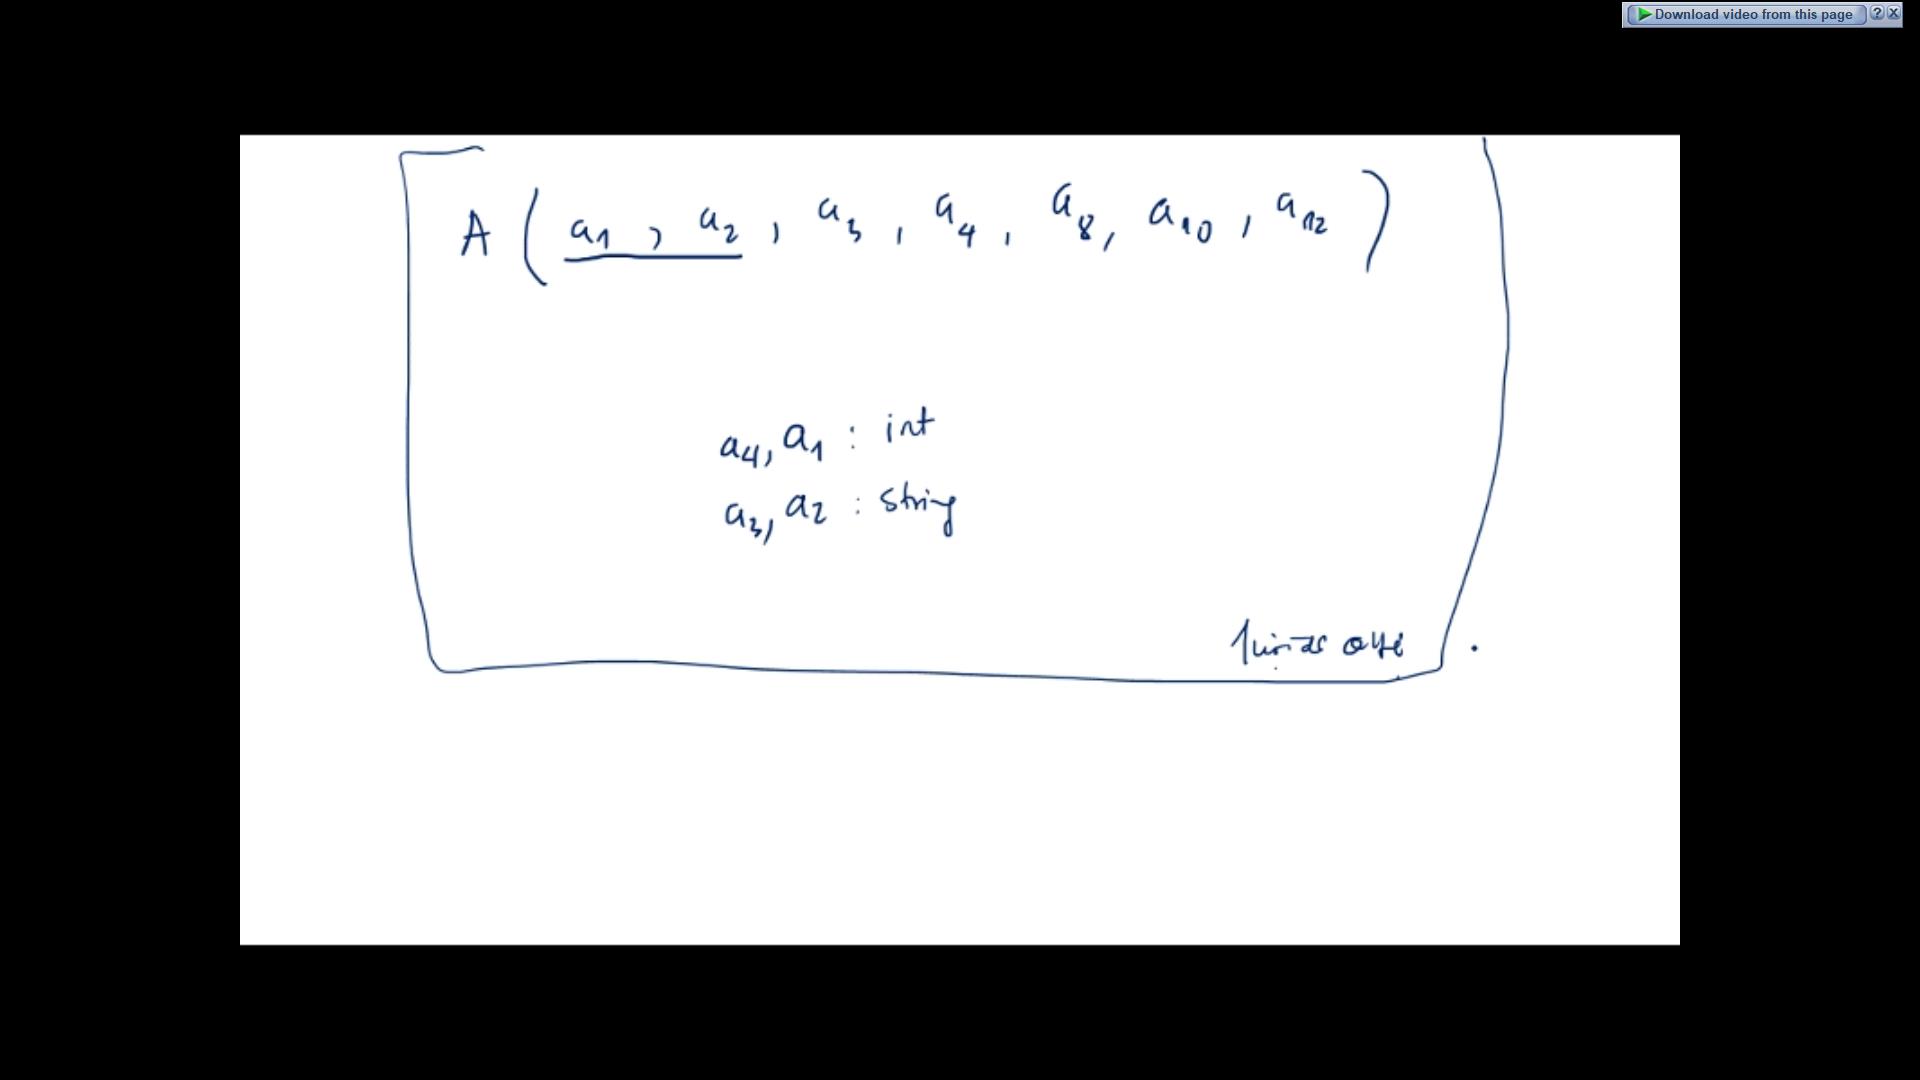 Download video from this page ? X
A ( a1 , a2 , a3 , a4 , a8 , a10 , a12 )
a4, a1 : int
a3, a2 : string